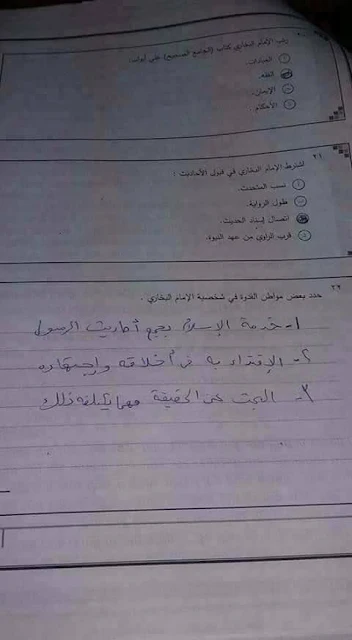 ٢٠ رتب الإمام البخاري كتاب (الجامع الصحيح) على أبواب:
أ العبادات.
ب الفقه.
ج الإيمان.
د الأحكام.
٢١ اشترط الإمام البخاري في قبول الأحاديث :
أ نسب المتحدث.
ب طول الرواية.
ج اتصال إسناد الحديث.
د قرب الراوي من عهد النبوة.
٢٢ حدد بعض مواطن القدوة في شخصية الإمام البخاري .
١- خدمة الإسلام بجمع أحاديث الرسول
٢- الاقتداء به في أخلاقه وإجتهاده
٣- البحث عن الحقيقة مهما يكلفه ذلك